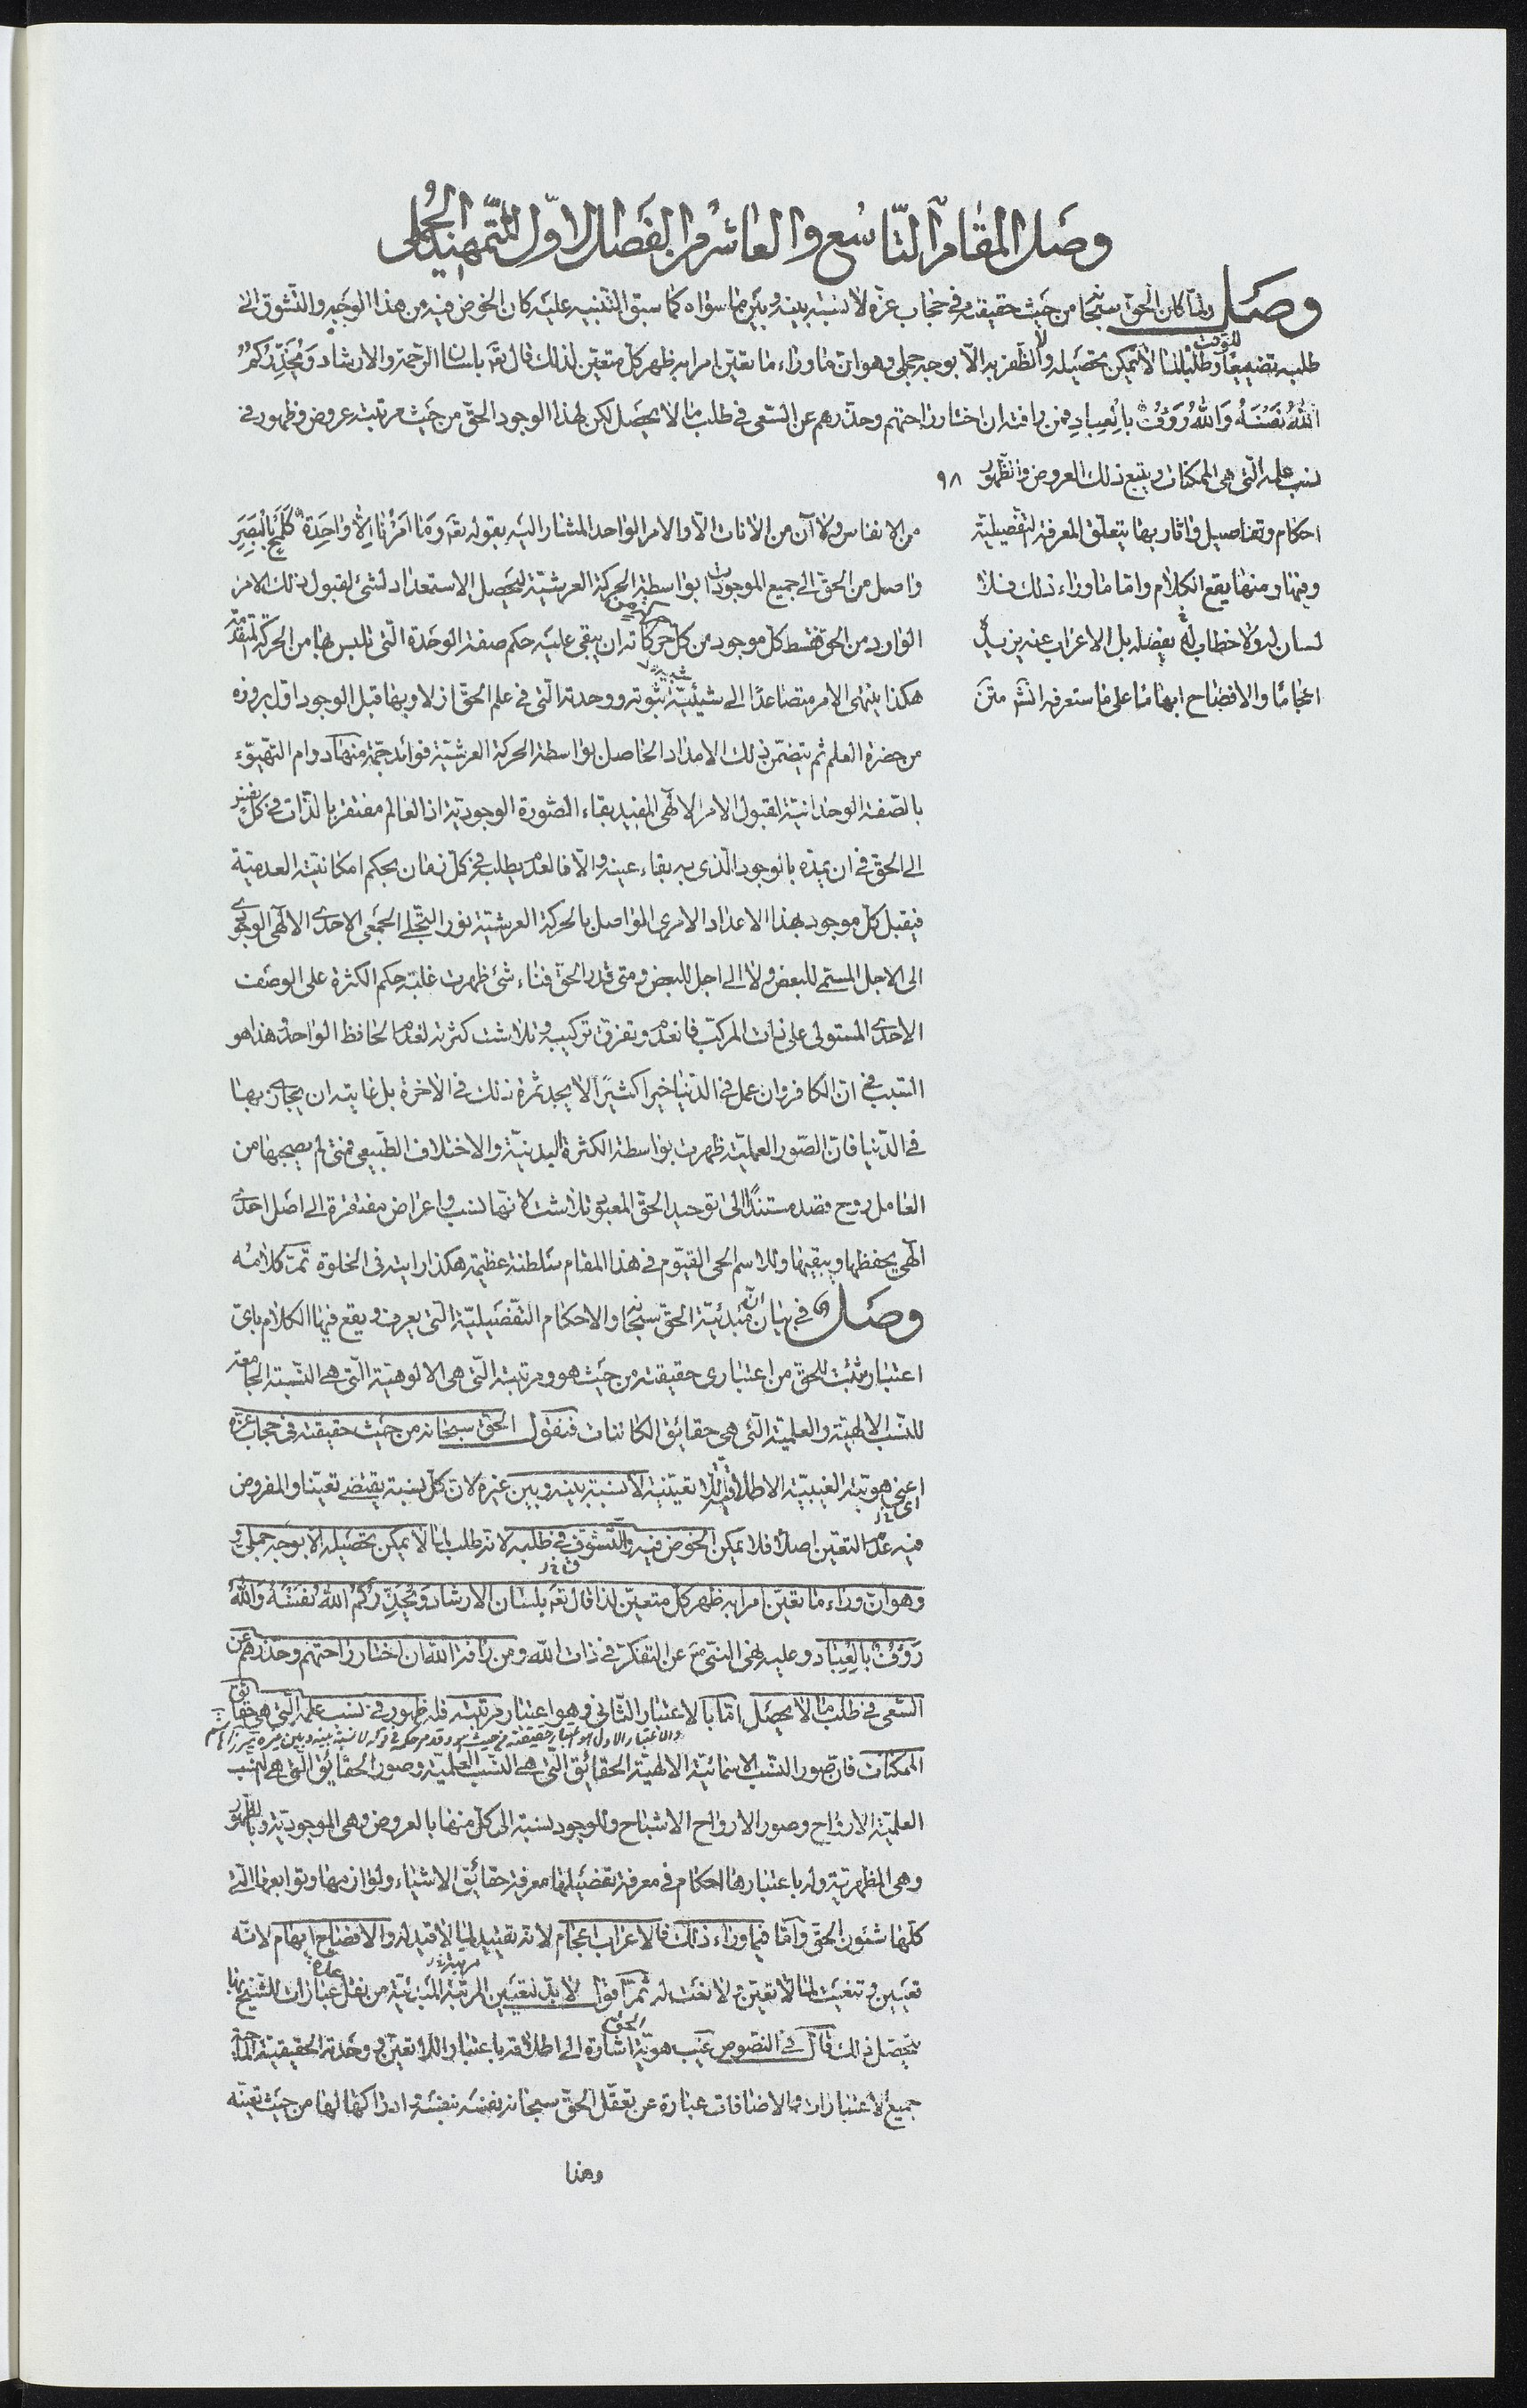 وصل المقام التاسع والعاشر من الفصل الاول للتمهيد الجملى
وصل ولما كان الحق سبحا من حيث حقيقته فى حجاب عزه لا نسبة بينه وبين ما سواه كما سبق التنبيه عليه كان الخوض فيه من هذا الوجه والتشوق الى
طلبه تضييعا للوقت وطلبا لما لا يمكن تحصيله ولا الظفر به الا بوجه جملى وهو ان ما وراء ما تعين امرا به ظهر كل متعين لذلك قال تعه بلسان الرحمة والارشاد وَيُحَذِّرُكُمُ
اللهُ نَفْسَهُ وَاللهُ رَؤُفٌ بِالْعِبادِ فمن رافته ان اختار راحتهم وحذرهم عن السعى فى طلب ما لا يحصل لكن لهذا الوجود الحق من حيث مرتبته عروض وظهور فى
نسب علمه التى هى الممكنات ويتبع ذلك العروض والظهور ٩٨
احكام وتفاصيل واثار بها يتعلق المعرفة التفصيلية
وفيها ومنها يقع الكلام واما ما وراء ذلك فلا
لسان له ولا خطاب له يفصله بل الاعراب عنه يزيده
اعجاما والافصاح ابهاما على ما ستعرفه انشه متن
من الانفاس ولا آن من الانات الا والامر الواحد المشار اليه بقوله تعه وَمَا اَمْرُنا اِلّا وَاحِدَة كَلَمْحٍ بِالْبَصَرِ
واصل من الحق الى جميع الموجودات بواسطة الحركة العرشية ليحصل الاستعداد لشئ لقبول ذلك الامر
الوارد من الحق فقسط كل موجود من كل حركة من حركاته ان يبقى عليه حكم صفة الوحدة التى تلبس بها من الحركة المتقدمة
هكذا ينتهى الامر متصاعدا الى شيئية ثبوته ووحدته التى فى علم الحق ازلا وبها قبل الوجود اول بروزه
من حضرة العلم ثم يتضمن ذلك الامداد الحاصل بواسطة الحركة العرشية فوائد جمة منها دوام التهيوء
بالصفة الوحدانية لقبول الامر الالهى المفيد بقاء الصورة الوجودية اذ العالم مفتقر بالذات فى كل نفس
الى الحق فى ان يمده بالوجود الذى به بقاء عينه والا فالعدم يطلب فى كل زمان بحكم امكانيته العدمية
فيقبل كل موجود بهذا الاعداد الامرى الواصل بالحركة العرشية نور التجلى الجمعى الاحدى الالهى الوجودى
الى الاجل المسمى للبعض ولا الى اجل للبعض ومتى قدر الحق فناء شئ ظهرت غلبة حكم الكثرة على الوصف
الاحدى المستولى على ذات المركب فانعدم وتفرق تركيبه وتلاشت كثرته لعدم الحافظ الواحد وهذا هو
السبب فى ان الكافر وان عمل فى الدنيا خيرا كثيرا لا يجد ثمرة ذلك فى الاخرة بل غايته ان يجازى بها
فى الدنيا فان الصور العملية ظهرت بواسطة الكثرة البدنية والاختلاف الطبيعى فمتى لم يصحبها من
العامل روح قصد مستندا الى توحيد الحق المعبود تلاشت لانها نسب واعراض مفتقرة الى اصل احدى
الهى يحفظها ويبقيها وللاسم الحى القيوم فى هذا المقام سلطنة عظيمة هكذا رايته فى الخلوة تمت كلامه
وصل فى بيان ان مبدئية الحق سبحا والاحكام التفصيلية التى يعرف ويقع فيها الكلام باى
اعتبار يثبت للحق من اعتبارى حقيقته من حيث هو ومرتبته التى هى الالوهية التى هى النسبة الجامعة
للنسب الالهية والعلمية التى هى حقائق الكائنات فنقول الحق سبحانه من حيث حقيقته فى حجاب عزه
اعنى هويته الغيبية الاطلاقية اللا تعينية لا نسبة بينه وبين غيره لان كل نسبة يقتضى تعينا والمفروض
فيه عدم التعين اصلا فلا يمكن الخوض فيه والتشوق فى طلبه لانه طلب لما لا يمكن تحصيله الا بوجه جملى
وهو ان وراء ما تعين امرا به ظهر كل متعين لذا قال تعه بلسان الارشاد وَيُحَذِّرُكُمُ اللهُ نَفْسَهُ وَاللهُ
رَؤُفٌ بِالْعِبَادِ وعليه نهى النبى ص عن التفكر فى ذات الله ومن رافة الله ان اختار راحتهم وحذرهم عن
السعى فى طلب ما لا يحصل اما بالاعتبار الثانى وهو اعتبار مرتبته فله ظهور فى نسب علمه التى هى حقائق
والاعتبار الاول هو اعتبار حقيقته من حيث هو وقد مر حكمه فى قوله لا نسبة بينه وبين غيره
الممكنات فان صور النسب الاسمائية الالهية الحقائق التى هى النسب العلمية وصور الحقائق التى هى النسب
العلمية الارواح وصور الارواح الاشباح وللوجود نسبة الى كل منها بالعروض وهى الموجودية وبالظهور
وهى المظهرية وله باعتبارها احكام فى معرفة تفصيلها معرفة حقائق الاشياء ولوازمها وتوابعها التى
كلها شئون الحق واما فيما وراء ذلك فالاعراب اعجام لانه تقييد لما لا قيد له والافصاح ابهام لانه
تعيين وتنعيت لما لا تعين له ولا نعت له ثم اقول لا بد لتعيين المرتبة المبدئية من نقل عبارات للشيخ بها
يتحصل ذلك قال فى النصوص غيب هوية الحق اشارة الى اطلاقه باعتبار اللا تعين ووحدته الحقيقية الماحية
جميع الاعتبارات والاضافات عبارة عن تعقل الحق سبحانه نفسه بنفسه وادراكها لها من حيث تعينه
وهذا